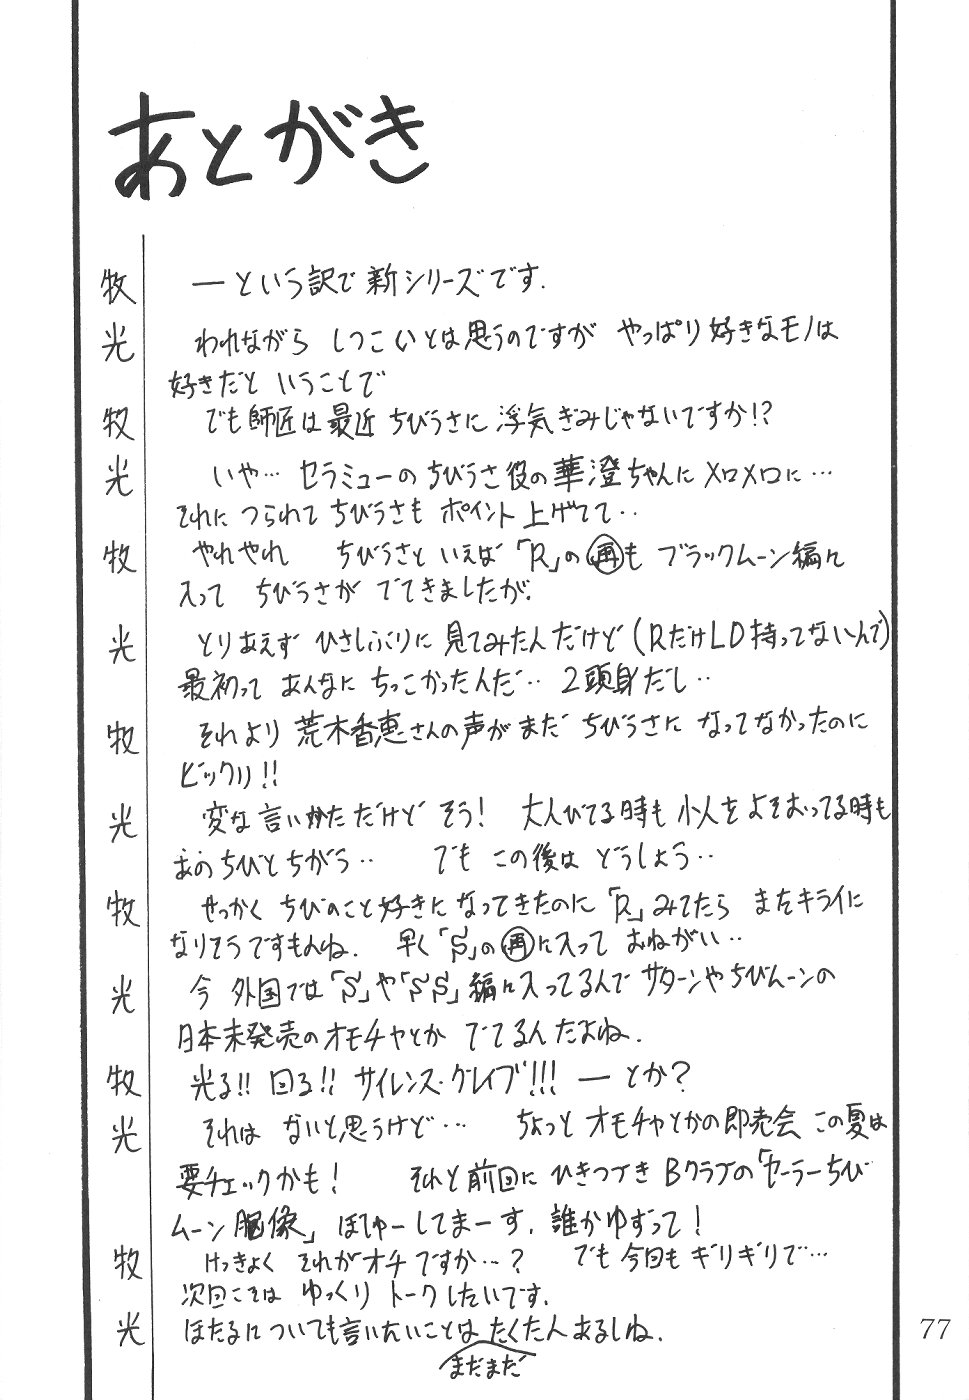 あとがき
牧 ―という訳で新シリーズです.
光 われながら しつこいとは思うのですが やっぱり好きなモノは
好きだと いうことで
牧 でも師匠は最近 ちびうさに浮気ぎみじゃないですか!?
光 いや… セラミューのちびうさ役の華澄ちゃんにメロメロに…
それに つられて ちびうさも ポイント上げてて‥
牧 やれやれ ちびうさと いえば「R」の再も ブラックムーン編に
入って ちびうさが でてきましたが.
光 とりあえず ひさしぶりに見てみたんだけど(RだけLD持ってないんで)
最初って あんなに ちっこかったんだ‥ 2頭身だし‥
牧 それより 荒木香恵さんの声がまだ ちびうさに なってなかったのに
ビックリ!!
光 変な言いかただけど そう! 大人びてる時も 小人をよそおってる時も
あのちびとちがう‥ でも この後は どうしよう‥
牧 せっかく ちびのこと好きになってきたのに「R」みてたら またキライに
なりそうですもんね. 早く「S」の再に入って おねがい‥
光 今 外国では「S」や「SS」編に入ってるんで サターンやちびムーンの
日本未発売のオモチャとか でてるんだよね.
牧 光る!! 回る!! サイレンス・グレイブ!!! ―とか?
光 それは ないと思うけど… ちょっと オモチャとかの即売会 この夏は
要チェックかも! それと前回に ひきつづき Bクラブの「セーラーちび
ムーン胸像」ぼしゅーしてまーす. 誰かゆずって!
牧 けっきょく それがオチですか…? でも今回もギリギリで…
次回こそは ゆっくり トークしたいです.
光 ほたるに ついても言いたいことは まだまだ たくさん あるしね.
77